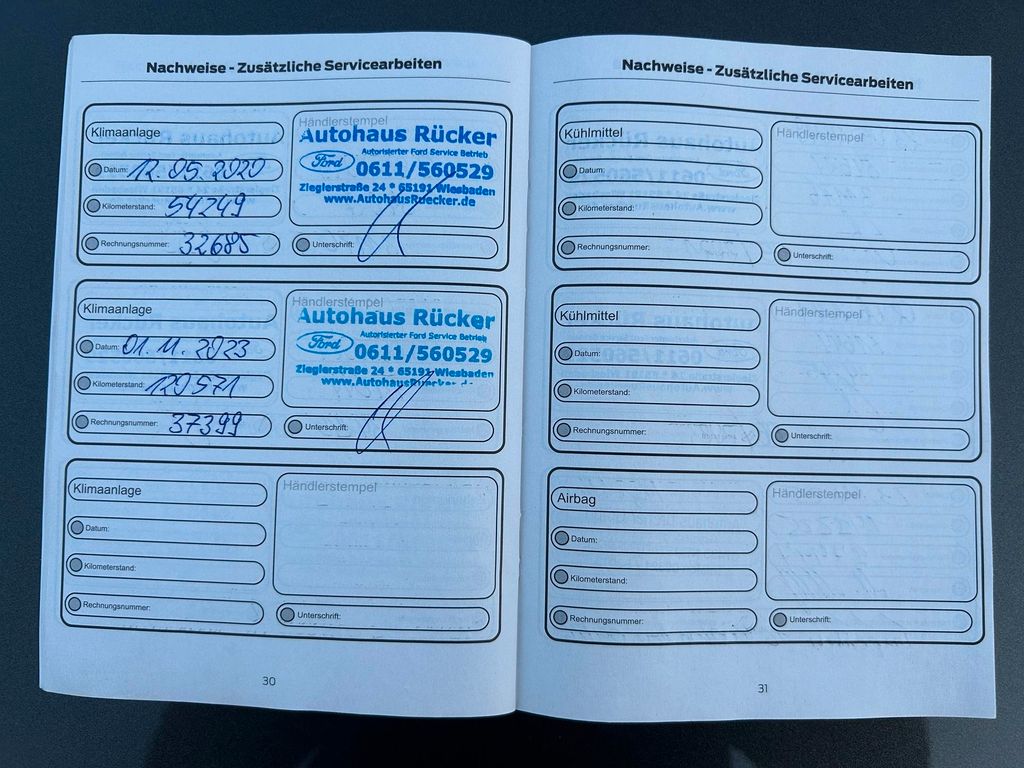 Nachweise - Zusätzliche Servicearbeiten
Klimaanlage
Datum: 12.05.2020
Kilometerstand: 54249
Rechnungsnummer: 32685
Händlerstempel
Autohaus Rücker
Autorisierter Ford Service Betrieb
Ford 0611/560529
Zieglerstraße 24 * 65191 Wiesbaden
www.AutohausRuecker.de
Unterschrift:
Klimaanlage
Datum: 01.11.2023
Kilometerstand: 120571
Rechnungsnummer: 37399
Händlerstempel
Autohaus Rücker
Autorisierter Ford Service Betrieb
Ford 0611/560529
Zieglerstraße 24 * 65191 Wiesbaden
www.AutohausRuecker.de
Unterschrift:
Klimaanlage
Datum:
Kilometerstand:
Rechnungsnummer:
Händlerstempel
Unterschrift:
30
Nachweise - Zusätzliche Servicearbeiten
Kühlmittel
Datum:
Kilometerstand:
Rechnungsnummer:
Händlerstempel
Unterschrift:
Kühlmittel
Datum:
Kilometerstand:
Rechnungsnummer:
Händlerstempel
Unterschrift:
Airbag
Datum:
Kilometerstand:
Rechnungsnummer:
Händlerstempel
Unterschrift:
31